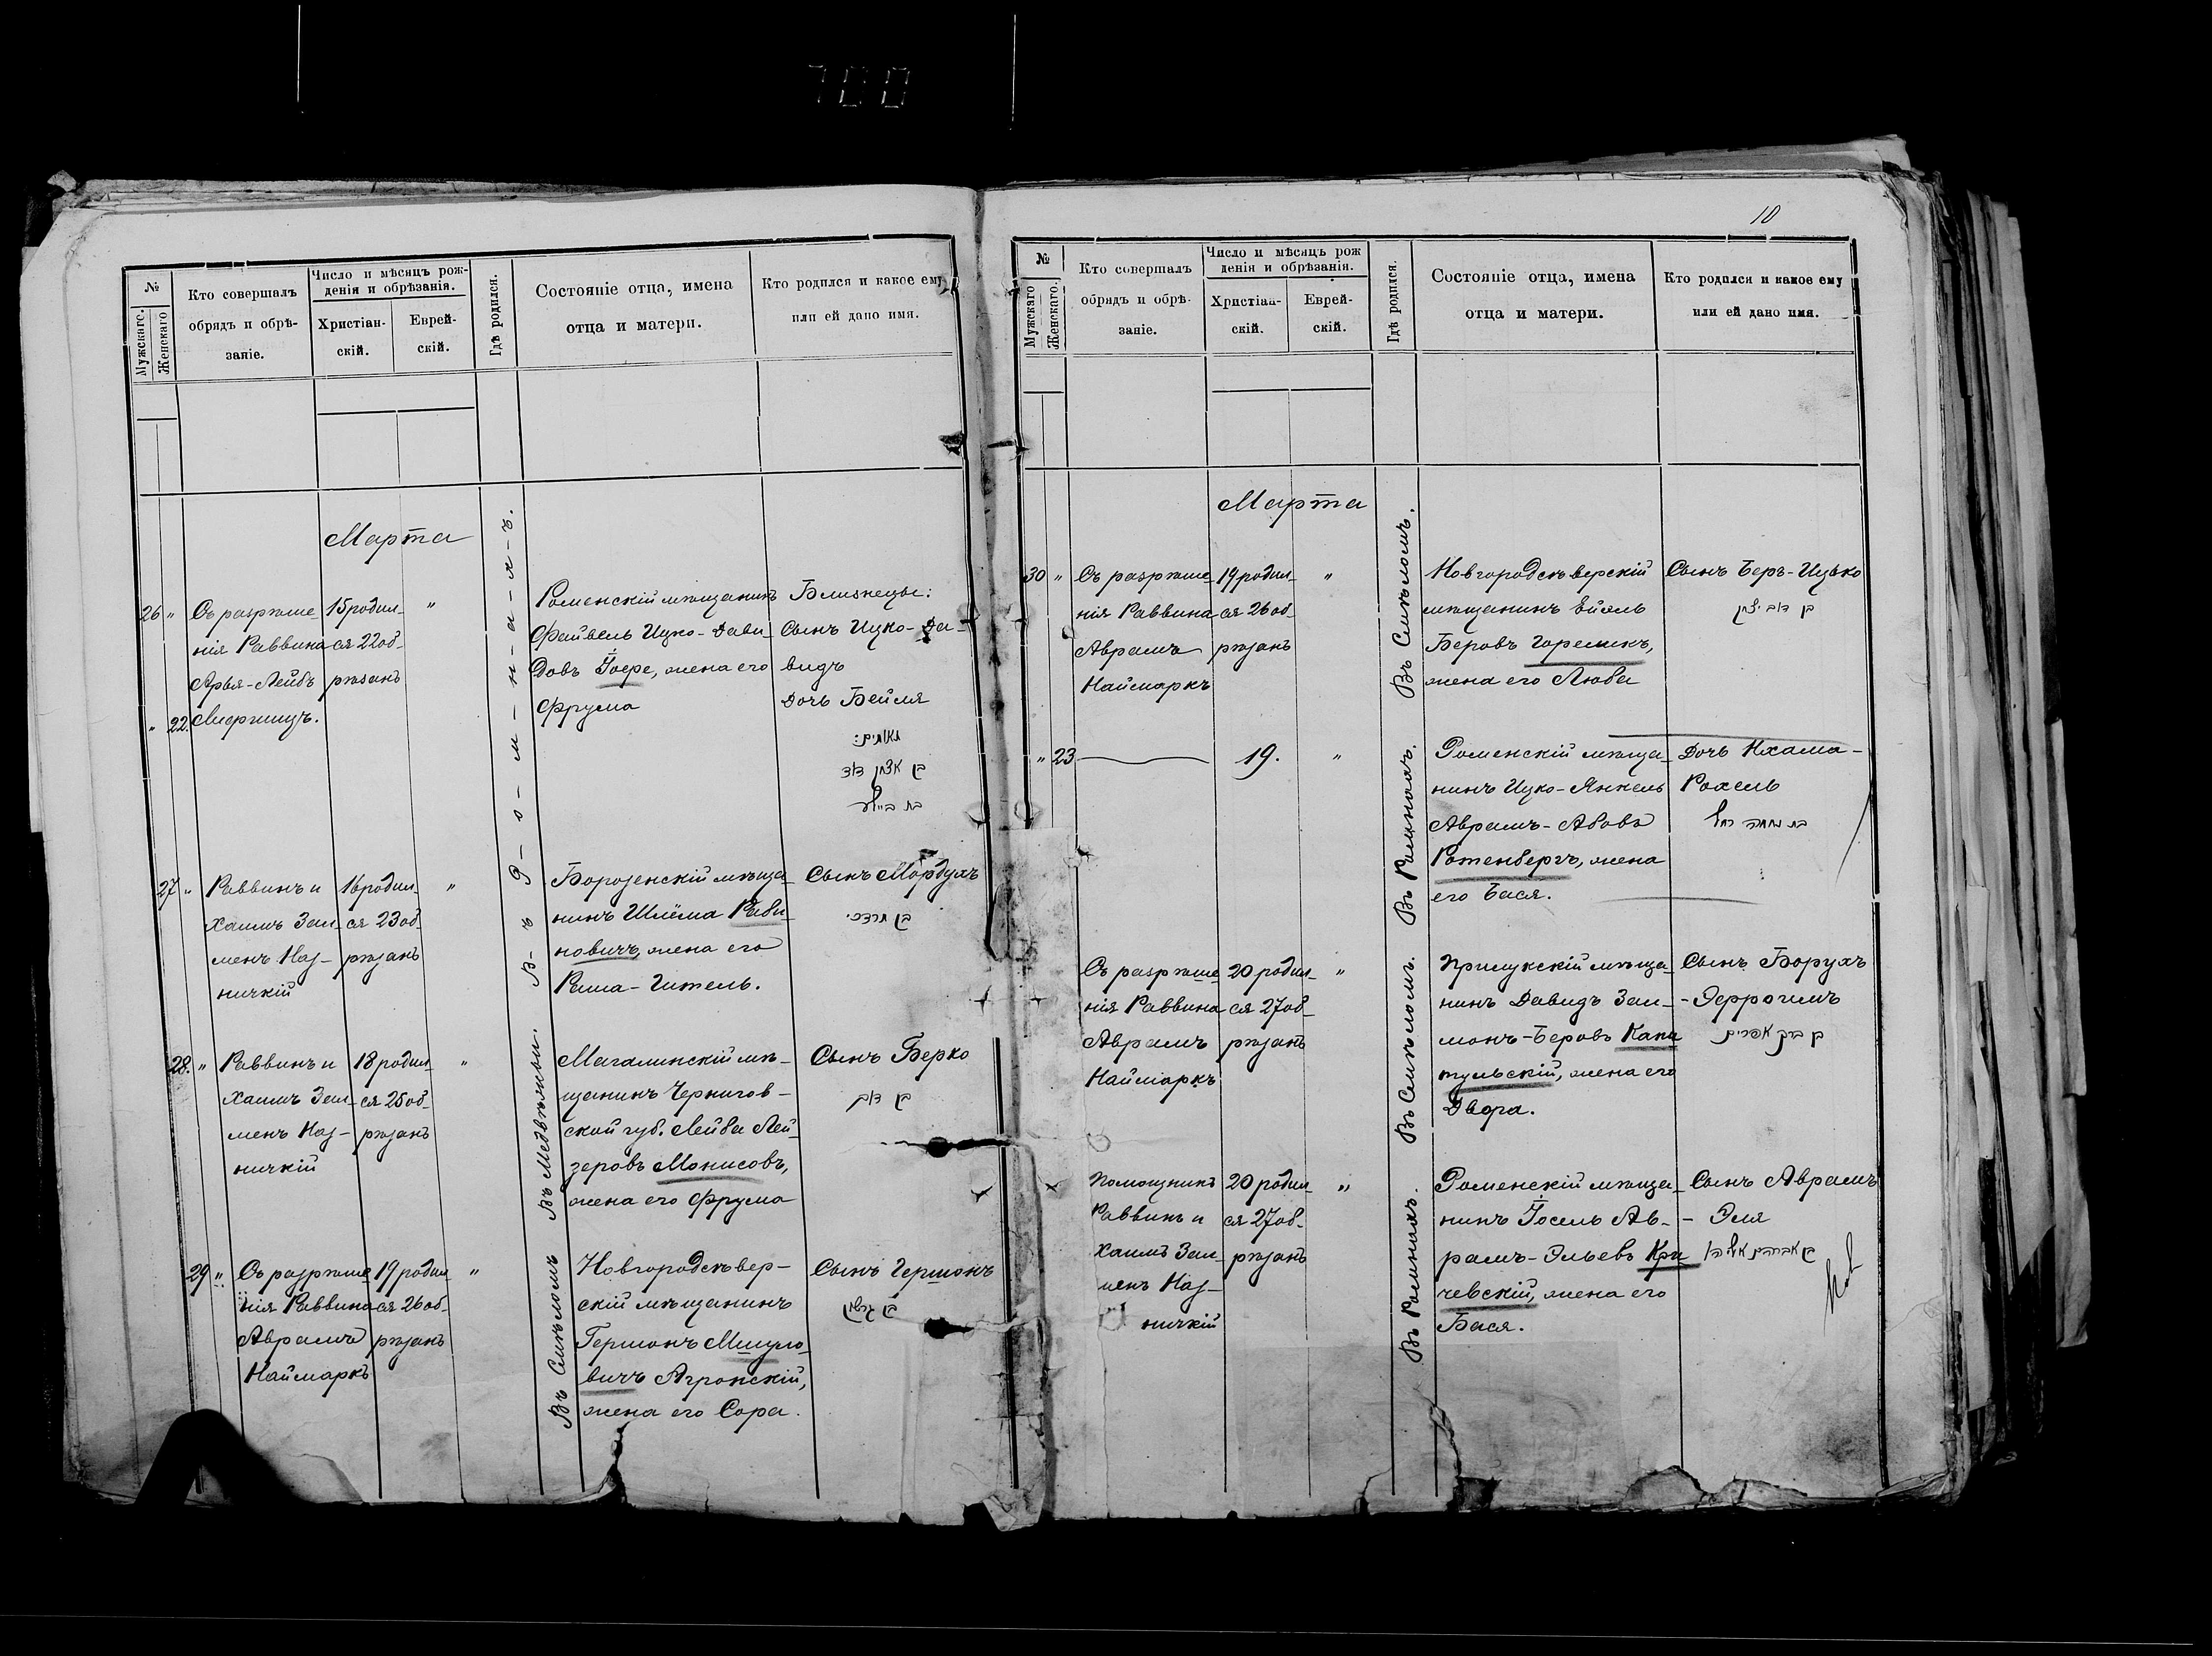 700
№
Мужскаго.
Женскаго
Кто совершалъ
обрядъ и обрѣ-
заніе.
Число и мѣсяцъ рож-
денія и обрѣзанія.
Христіан-
скій.
Еврей-
скій.
Гдѣ родился.
Состояніе отца, имена
отца и матери.
Кто родился и какое ему
или ей дано имя.
Марта
26 "
Съ разрѣше-
нія Раввина
Арья-Лейбъ
" 22.
15 родил-
ся 22 об-
рѣзанъ
"
В-ъ Р-о-м-н-а-х-ъ.
Роменскій мѣщанинъ
Файвель Ицко-Дави-
довъ Іоффе, жена его
Фрума
Близнецы:
Сынъ Ицко-Да-
видъ
Дочь Бейля
תאומים:
בן יצחק דוד
בת ביילע
27 "
Раввинъ и
Хаимъ Зал-
менъ Наз-
ничкій
16 родил-
ся 23 об-
рѣзанъ
"
Борозенскій мѣща-
нинъ Шлёма Раби-
новичъ, жена его
Раша-Гитель.
Сынъ Мордухъ
בן מרדכי
28. "
Раввинъ и
Хаимъ Зал-
менъ Наз-
ничкій
18 родил-
ся 25 об-
рѣзанъ
"
Въ Медвѣжьи.
Магалинскій мѣ-
щанинъ Чернигов-
ской губ. Лейба Лей-
зеровъ Монисовъ,
жена его Фрума
Сынъ Берко
בן דוב
29 "
Съ разрѣше-
нія Раввина
Аврамъ
Наймаркъ
19 родил-
ся 26 об-
рѣзанъ
"
Въ Смѣломъ
Новгородсѣвер-
скій мѣщанинъ
Гершонъ
вичъ Агронскій,
жена его Сора.
Сынъ Гершонъ
בן גרשון
10
№
Мужскаго
Женскаго.
Кто совершалъ
обрядъ и обрѣ-
заніе.
Число и мѣсяцъ рож
денія и обрѣзанія.
Христіан-
скій.
Еврей-
скій.
Гдѣ родился.
Состояніе отца, имена
отца и матери.
Кто родился и какое ему
или ей дано имя.
Марта
30 "
Съ разрѣше-
нія Раввина
Аврамъ
Наймаркъ
19 родил-
ся 26 об-
рѣзанъ
"
Въ Смѣломъ.
Новгородсѣверскій
мѣщанинъ
Беровъ Гореликъ,
жена его Люба
Сынъ Беръ-Ицько
בן דוב יצחק
" 23
19.
"
Въ Ромнахъ.
Роменскій мѣща-
нинъ Ицко-Янкель
Аврамъ-Абовъ
Ротенбергъ, жена
его Бася.
Дочь Нхама-
Рахель
בת נחמה רחל
Съ разрѣше-
нія Раввина
Аврамъ
Наймаркъ
20 родил-
ся 27 об-
рѣзанъ
"
Въ Смѣломъ.
Прилукскій мѣща-
нинъ Давидъ Зал-
монъ-Беровъ Капи
тульскій, жена его
Двора.
Сынъ Борухъ
-Эфроимъ
בן ברוך אפרים
Помощникъ
Раввинъ и
Хаимъ Зал-
менъ Наз-
ничкій
20 родил-
ся 27 об-
рѣзанъ
"
Въ Ромнахъ.
Роменскій мѣща-
нинъ Іосель Ав-
рамъ-Эльевъ Кри
чевскій, жена его
Бася.
Сынъ Аврамъ
- Эля
בן אברהם אליהו